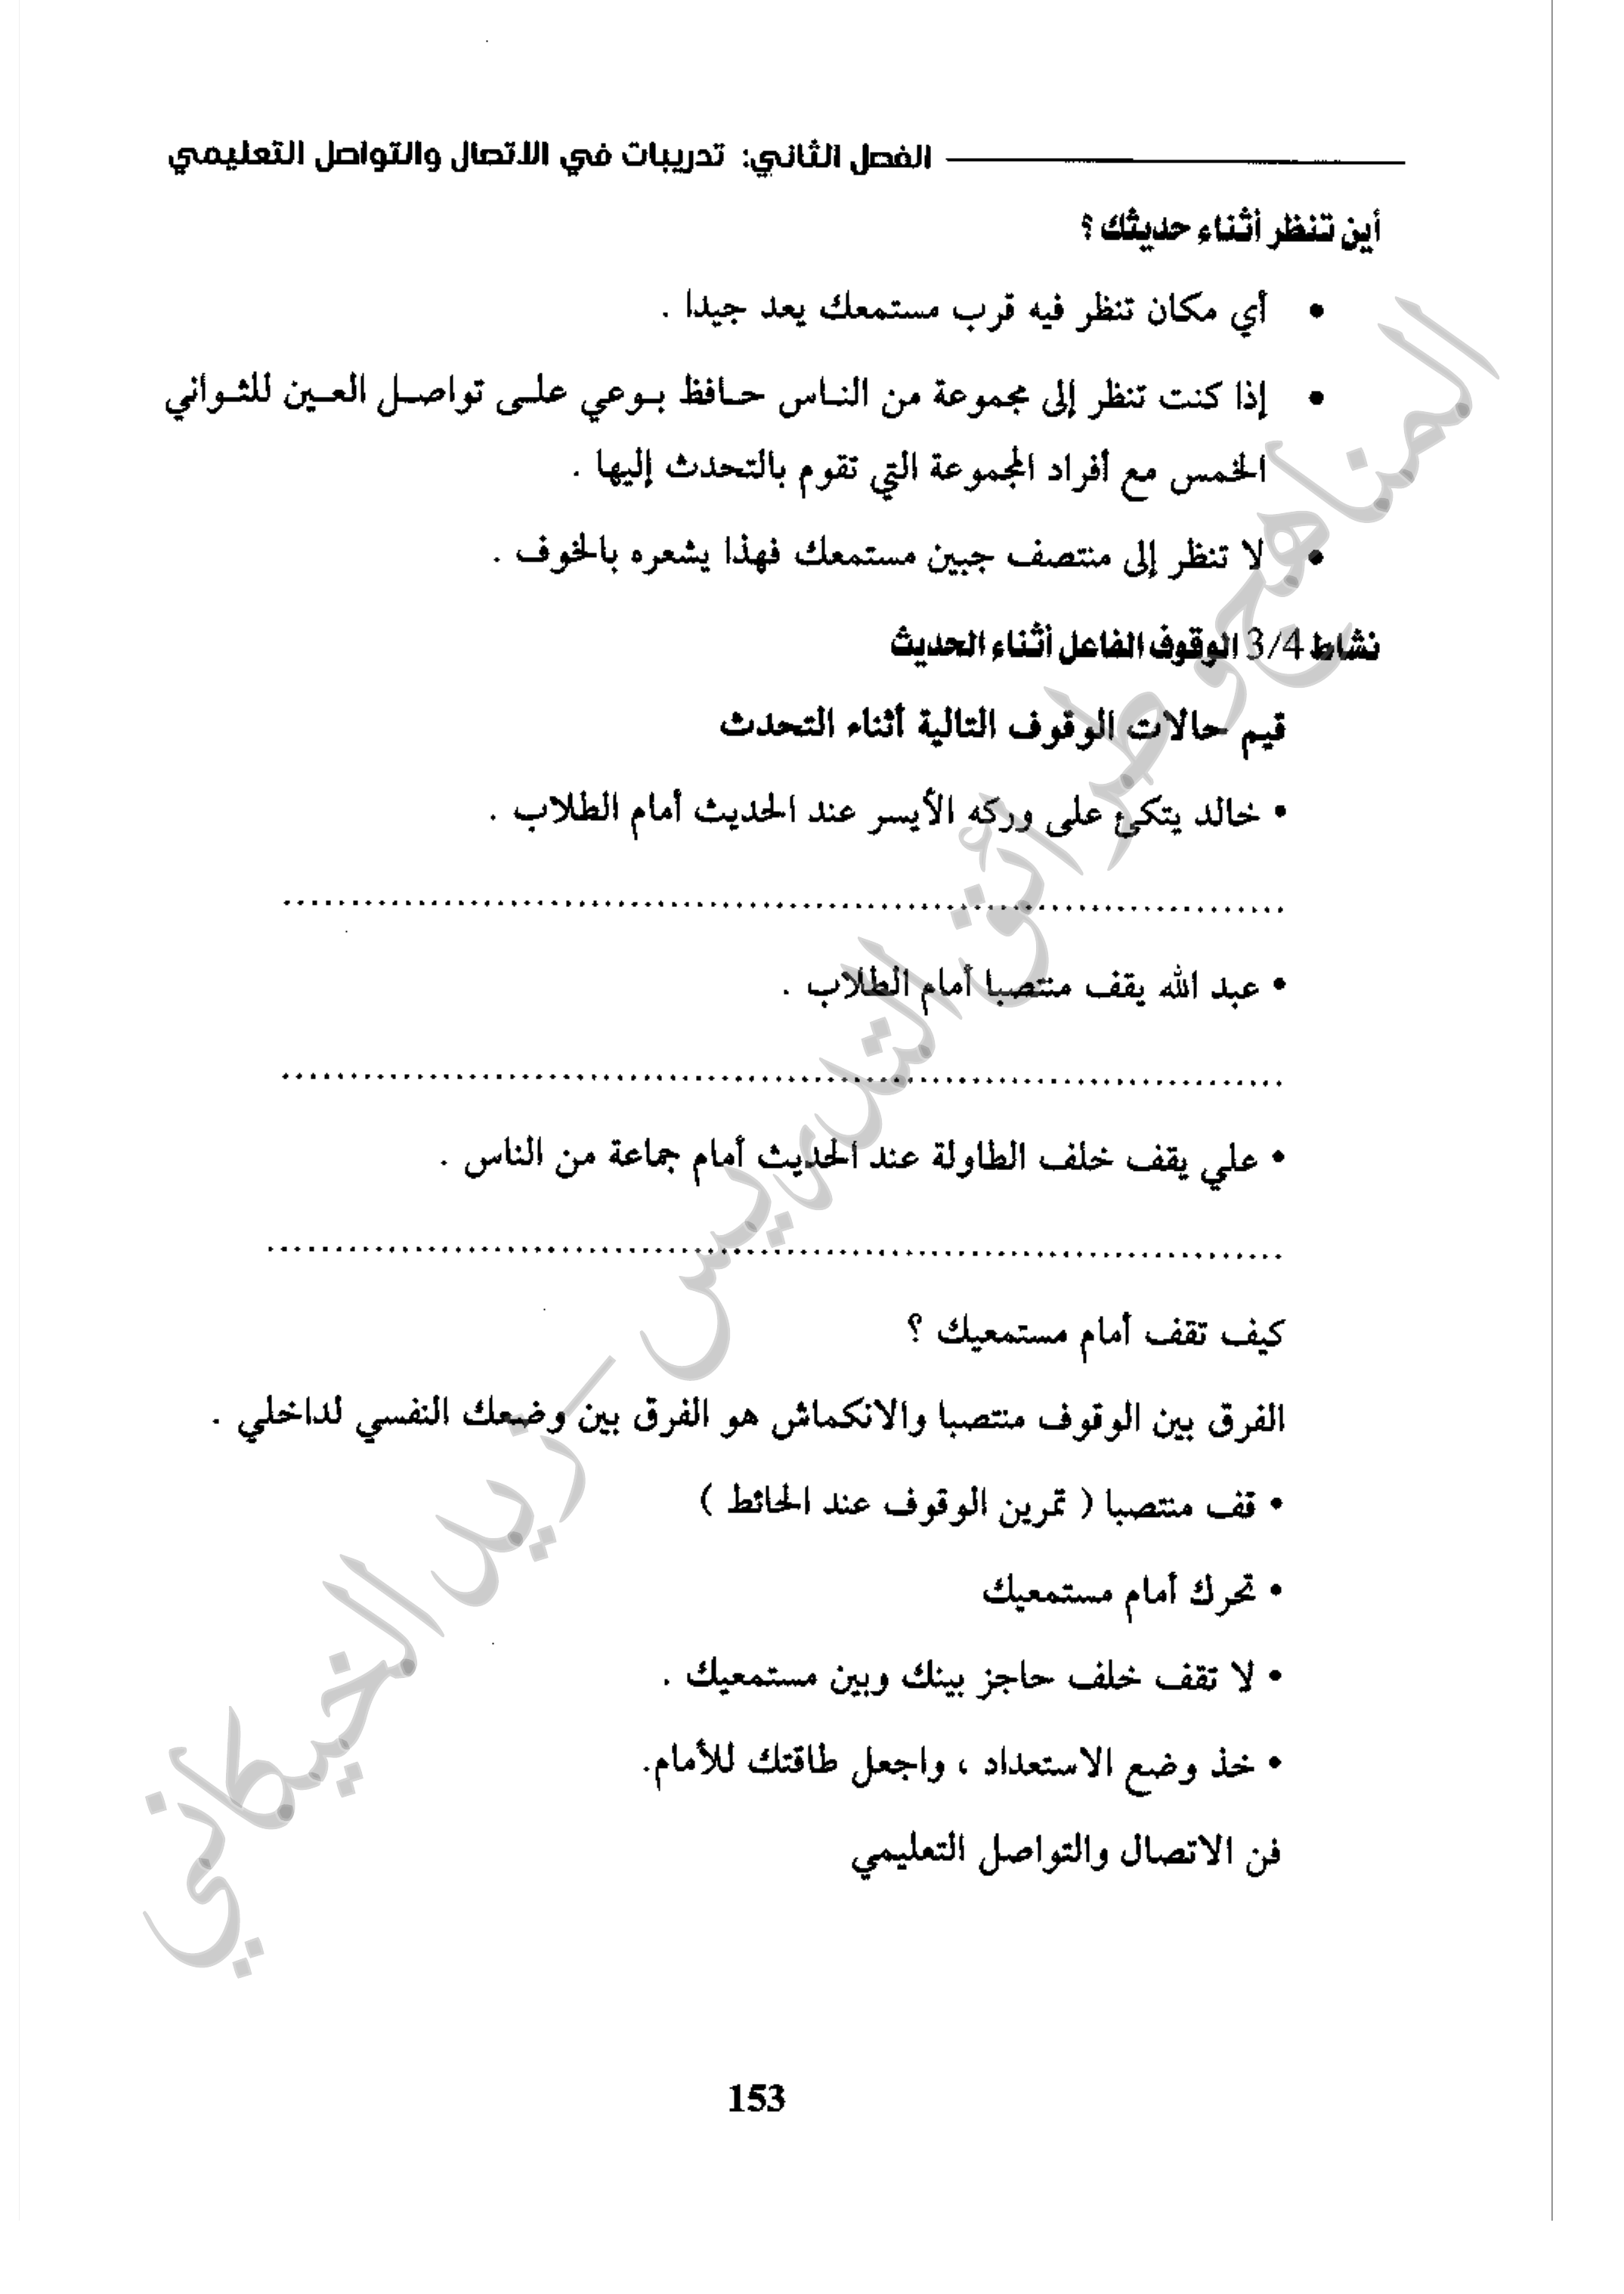 الفصل الثاني: تدريبات في الاتصال والتواصل التعليمي
أين تنظر أثناء حديثك ؟
• أي مكان تنظر فيه قرب مستمعك يعد جيدا .
• إذا كنت تنظر إلى مجموعة من النـاس حـافظ بـوعي علـى تواصـل العـين للثـواني
الخمس مع أفراد المجموعة التي تقوم بالتحدث إليها .
• لا تنظر إلى منتصف جبين مستمعك فهذا يشعره بالخوف .
نشاط 3/4 الوقوف الفاعل أثناء الحديث
قيم حالات الوقوف التالية أثناء التحدث
• خالد يتكئ على وركه الأيسر عند الحديث أمام الطلاب .
................................................................................
• عبد الله يقف منتصبا أمام الطلاب .
................................................................................
• علي يقف خلف الطاولة عند الحديث أمام جماعة من الناس .
................................................................................
كيف تقف أمام مستمعيك ؟
الفرق بين الوقوف منتصبا والانكماش هو الفرق بين وضعك النفسي لداخلي .
• قف منتصبا ( تمرين الوقوف عند الحائط )
• تحرك أمام مستمعيك
• لا تقف خلف حاجز بينك وبين مستمعيك .
• خذ وضع الاستعداد ، واجعل طاقتك للأمام.
فن الاتصال والتواصل التعليمي
153
المناهج وطرائق التدريس - زيد الخيكاني